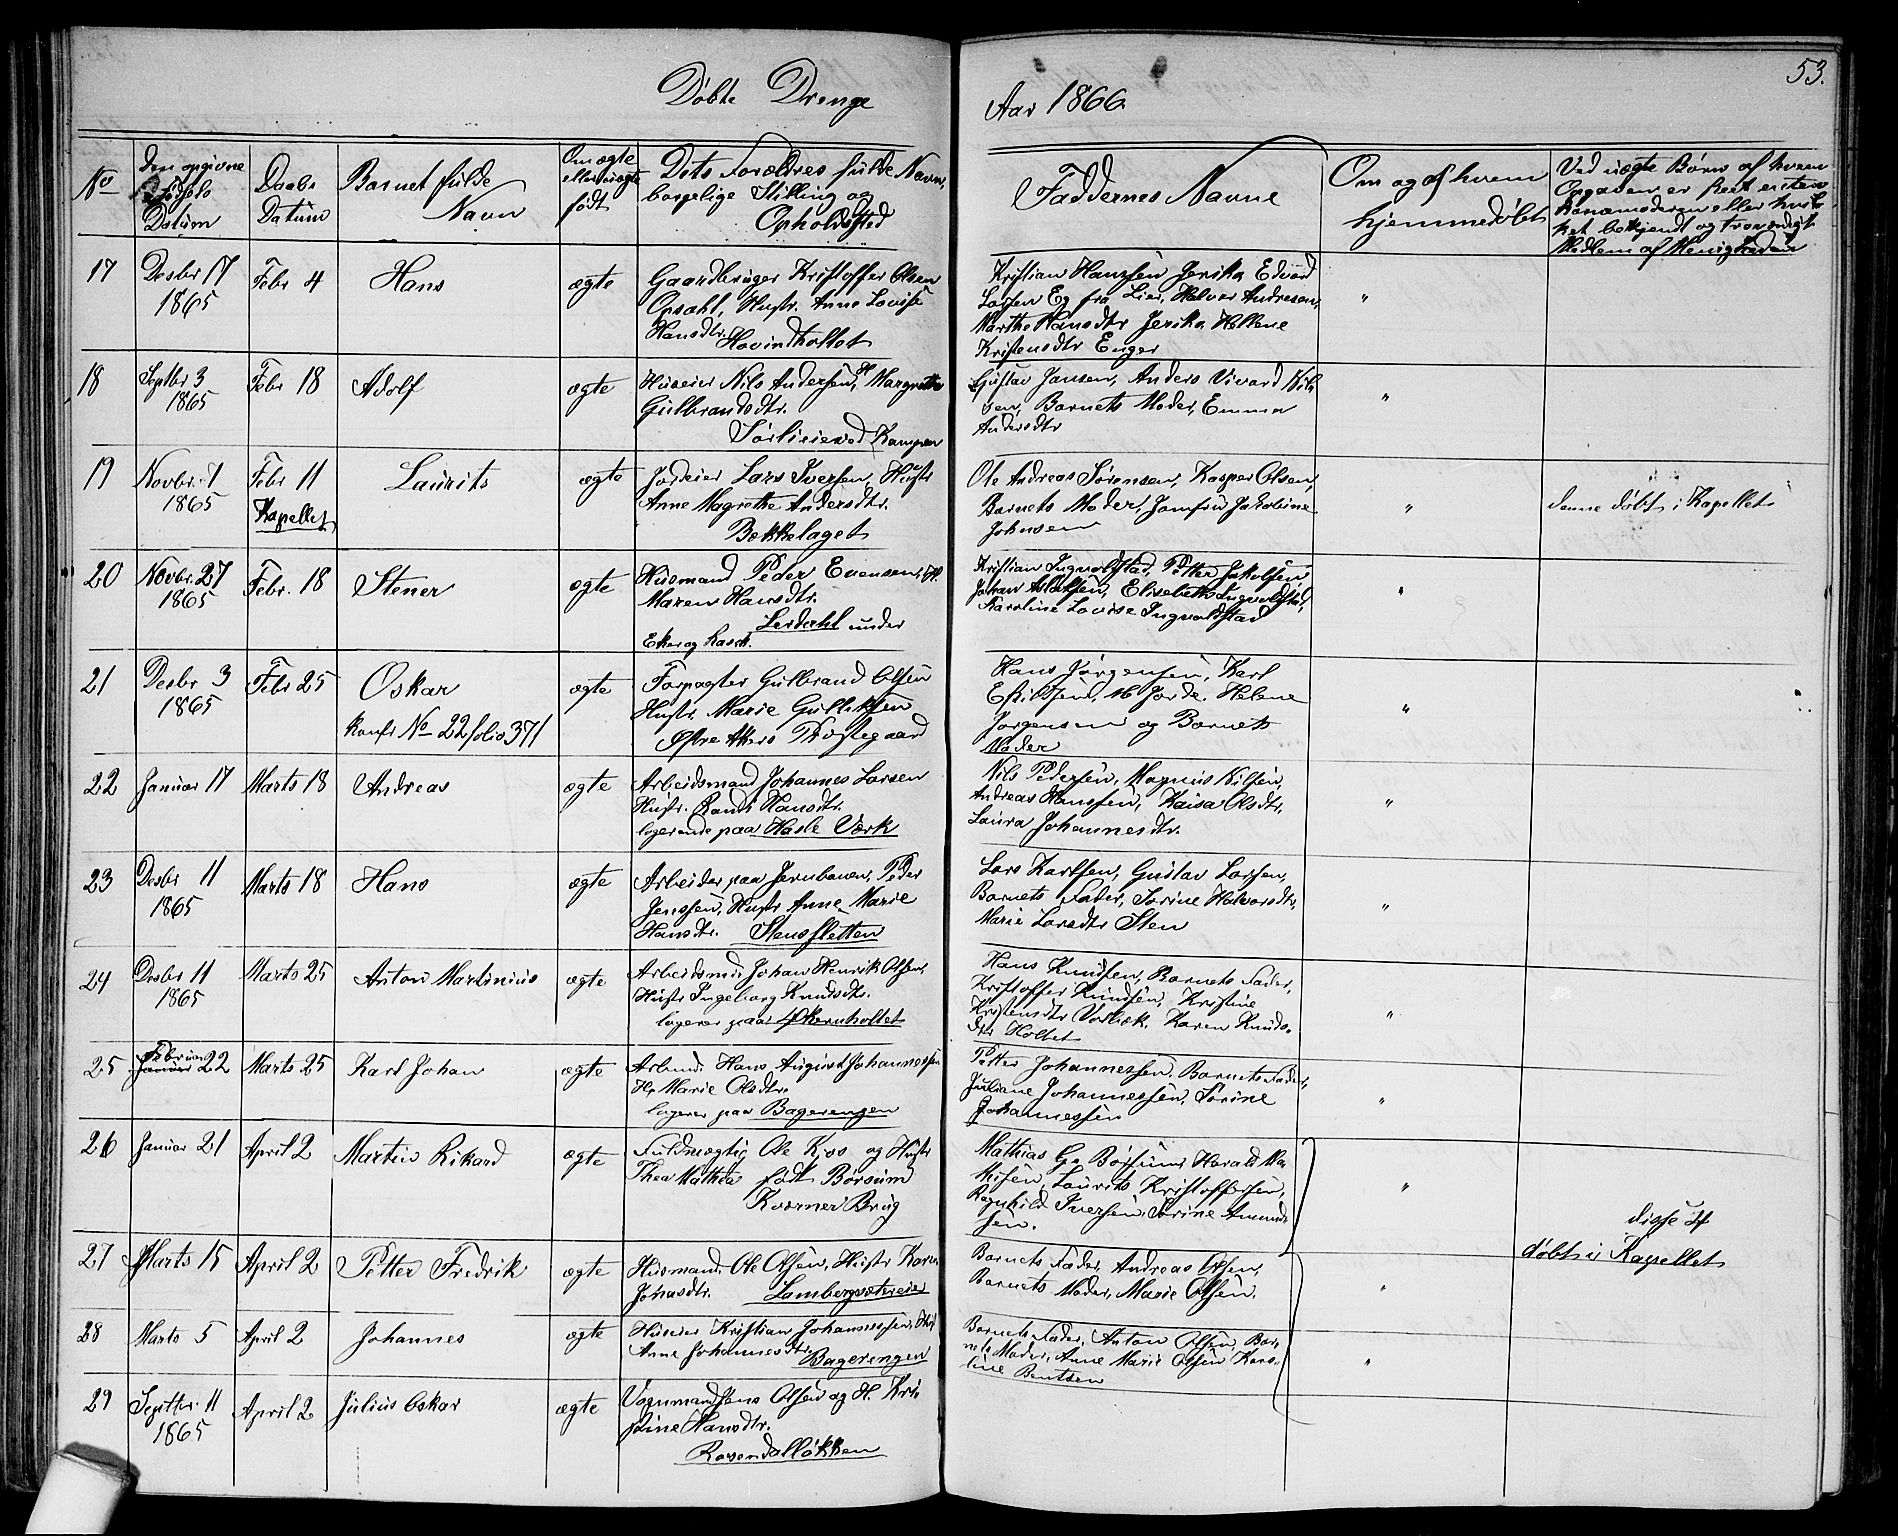 53.
Døbte Drenge
Aar 1866.
No
den opgivne
Fødsels
Datum
Daabs
Datum
Barnet fulde
Navn
Om ægte
eller uægte
født
Dets Forældres fulde Navn,
borgelige Stilling og
Opholdssted
Faddernes Navne
Om og af hvem
hjemmedøbt
Ved uægte Børn af hvem
Opgaven er skeet enten
Konemoderen eller hvil
ket bekjendt og troværdigt
Medlem af Menigheden
17
Desbr 17
1865
Febr 4
Hans
ægte
Gaardbruger Kristoffer Olsen
Opsahl, Hustr. Anne Lovise
Hansdtr.
Hovindholtet
Kristian Hanssen Jeriko Edvard
Larsen Eg fra Lier, Halvor Andresen,
Marthe Hansdtr Jeriko Hellene
Kristensdtr Enger
"
18
Septbr 3
1865
Febr 18
Adolf
ægte
Huseier Nils Andersen, H Margrethe
Gulbrandsdtr.
Sørlieie ved Kampen
Gustav Jansen, Anders Vivard Nil
sen, Barnets Moder, Emma
Andersdtr
"
19
Novbr. 1
1865
Febr 11
Kapellet
Laurits
ægte
Jordeier Lars Iversen, Hustr
Anne Magrethe Andersdtr.
Bekkelaget
Ole Andreas Sørensen, Kasper Olsen,
Barnets Moder, Jomfru Jakobine
Johnsen
"
denne døbt i Kapellet
20
Novbr. 27
1865
Febr. 18
Stener
ægte
Husmand Peder Evensen, H.
Maren Hansdtr.
Lerdahl under
Eker og Rasch.
Kristian Ingvolstad, Petter Jakobsen
Johan Aslaksen, Elisabeth Ingvoldstad,
Karoline Lovise Ingvoldstad
"
21
Desbr 3
1865
Febr 25
Oskar
Konfr No 22 folio 371
ægte
Forpagter Gulbrand Olsen
Hustr. Marie Gulliksen
Østre Akers Præstegaard
Hans Jørgensen, Karl
Eskildsen, M Jorde. Helene
Jørgensen og Barnets
Moder
"
22
Januar 17
Marts 18
Andreas
ægte
Arbeidsmand Johannes Larsen
Hustr. Randi Hansdtr.
logerende paa Hasle Værk
Nils Pedersen, Magnus Nilsen,
Andreas Hanssen, Kaisa Olsdtr,
Laura Johannesdtr.
"
23
Desbr 11
1865
Marts 18
Hans
ægte
Arbeider paa Jernbanen, Peder
Jenssen, Hustr Anne Marie
Hansdtr. Stenssletten
Lars Karlsen, Gustav Larsen,
Barnets Fader, Sorine Halvorsdtr,
Marie Larsdtr Sten
"
24
Desbr 11
1865
Marts 25
Anton Martinius
ægte
Arbeidsmd Johan Henrik Olsen,
Hustr Ingeborg Knudsdtr.
logerer paa Økernholtet
Hans Knudsen, Barnets Fader,
Kristoffer Knudsen, Kristine
Kristensdtr Karen Knuds-
dtr Holtet
"
25
Februar
Januar 22
Marts 25
Karl Johan
ægte
Arbmd. Hans August Johannessen
H. Marie Olsdtr.
logerer paa Bagerengen
Petter Johannessen. Barnets Fader,
Juliane Johannessen, Sorine
Johannessen
"
26
Januar 21
April 2
Martin Rikard
ægte
Fuldmægtig Ole Kjos og Hustr
Thea Mathea født Børsum
Kværner Brug
Mathias G. Børsum, Harald Ma
thisen, Laurits Kristoffersen,
Ragnhild Iversen, Sorine Amund
sen.
"
disse 4
døbt i Kapellet
27
Marts 15
April 2
Petter Fredrik
ægte
Husmand. Ole Olsen, Hustr Karen
Johasdtr. Lambergsætereie
Barnets Fader, Andreas Olsen,
Barnets Moder, Marie Olsen.
"
28
Marts 5
April 2
Johannes
ægte
Huseier Kristian Johannessen, Hust
Anne Johannesdtr.
Bagerengen
Barnets Fader, Anton Olsen, Bar
nets Moder, Anne Marie Olsen Karo-
line Bentsen
"
29
Septbr. 11
1865
April 2
Julius Oskar
ægte
Vognmand Jens Olsen og H. Kri
stine Hansdtr.
Rosendalløkken